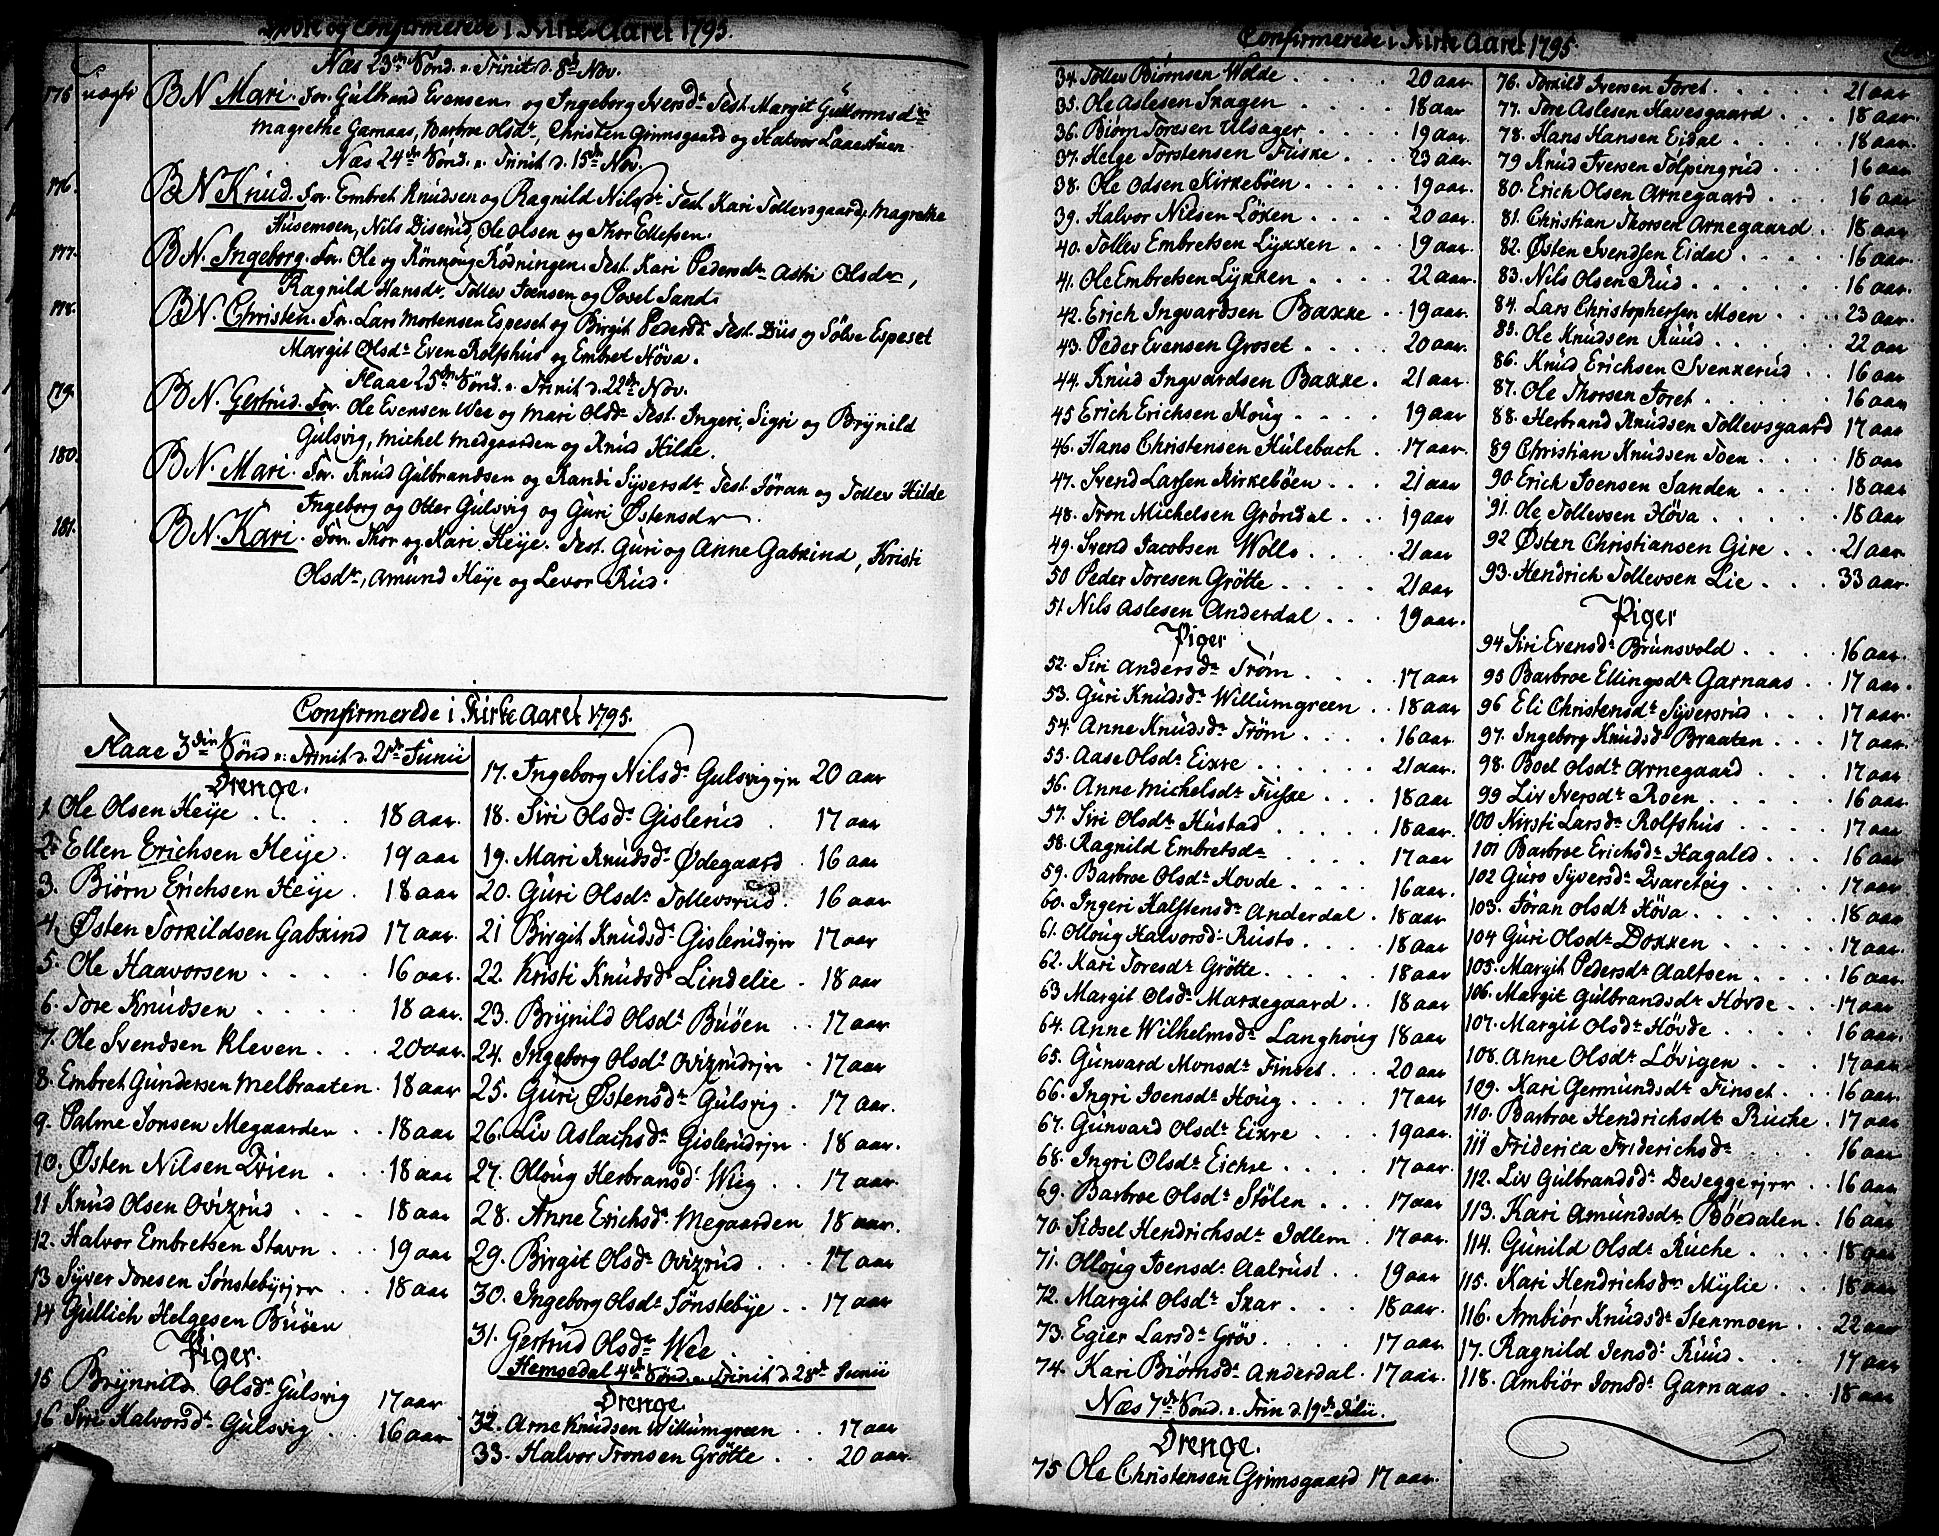 Døbte og Confirmerede i Kirke Aaret 1795.
Næs 23de Sønd. e. Trinit. d. 8de Nov.
175 uægte BN Mari. For. Gulbrand Evensen og Ingeborg Iversdr Test. Margit Guttormsdr
Magrethe Garnaas, Barbroe Olsdr, Christen Grimsgaard og Halvor
Næs 24de Sønd. e. Trinit. d. 15de Nov.
176. BN Knud. For. Embret Knudsen og Ragnild Nilsdr Test. Kari Tollevsgaard, Magrethe
Husemsen, Nils Diserud, Ole Olsen og Thor Ellefsen.
177. BN. Ingeborg. For. Ole og Rønnoug Rødningen. Test. Kari Pedersdr Astri Olsdr,
Ragnild Hansdr, Tollev Joensen og Povel Sand.
178. BN. Christen. For. Lars Mortensen Espeset og Birgit Pedersdr Test. Diis og Sølve Espeset
Margit Olsdr Even Rolfshus og Embret Høva.
Flaae 25de Sønd. e. Trinit. d. 22de Nov.
179. BN. Gertrud. For. Ole Evensen Wee og Mari Olsdr Test. Ingeri, Sigri og Brynild
Gulsvig, Michel Medgaarden og Knud Hilde.
180. BN. Mari. For. Knud Gulbrandsen og Randi Syversdr Test. Jøran og Tollev Hilde
Ingeborg og Otter Gulsvig og Guri Østensdr.
181. BN. Kari. For. Thor og Kari Heije. Test. Guri og Anne Gabkind, Kristi
Olsdr, Amund Heye og Levor Rud.
Confirmerede i Kirke Aaret 1795.
Flaae 3die Sønd. e. Trinit. d. 21de Junii
Drenge.
1. Ole Olsen Heije . . . 18 aar.
2. Ellen Erichsen Heije. 19 aar
3. Biørn Erichsen Heije . 18 aar.
4. Østen Torkildsen Gabkind 17 aar.
5. Ole Haavorsen . . . . 16 aar.
6. Tore Knudsen . . . . 18 aar.
7. Ole Svendsen Kleven . . . 20 aar.
8. Embret Gundersen Melbraaten. 18 aar
9. Palme Jonsen Megaarden . . 18 aar
10. Østen Nilsen Lvien . . 18 aar
11 Knud Olsen Ovizrud . . . 18 aar
12. Halvor Embretsen Stavn . . 19 aar
13 Syver Toresen Sønstebyejer . . 18 aar
14 Gullich Helgesen Buøen
Piger.
15 Brynnild Olsdr Gulsvig 17 aar
16 Siri Halvorsdr Gulsvig . 16 aar
17. Ingeborg Nilsdr Gulsvigejr 20 aar
18. Siri Olsdr Gislerud . 17 aar
19. Mari Knudsdr Ødegaard . 16 aar
20. Guri Olsdr Tollevsrud. 16 aar
21 Birgit Knudsdr Gislerudejr 17 aar
22. Kristi Knudsdr Lindelie . 18 aar
23. Brynild Olsdr Buøen . . 17 aar
24. Ingeborg Olsdr Ovizrudejr . 17 aar
25. Guri Østensdr Gulsvig . 17 aar.
26. Liv Aslachsdr Gislerudejr . 18 aar.
27. Olloug Herbransdr Wieg . 17 aar.
28. Anne Erichsdr Megaarden 18 aar.
29. Birgit Olsdr Ovizrud . . . 17 aar
30. Ingeborg Olsdr Sønstebye . . 17 aar
31. Gertrud Olsdr Wee . . . .
Hemsedal 4de Sønd. e. Trinit d. 28de Junii
Drenge.
32. Arne Knudsen Willumgreen . . 17 aar
33. Halvor Tronsen Grøtte . . 20 aar.
Confirmerede i Kirke Aaret 1795.
34. Tollev Biørnsen Wolde . . . . 20 aar
35. Ole Aslesen Skagen . . . . 18 aar
36. Biørn Toresen Ulsager . . . . 19 aar
37. Helge Torstensen Fuske . . . 23 aar
38. Ole Odsen Kirkebøen . . . . 19 aar.
39. Halvor Nilsen Løken . . . . 20 aar
40. Tollev Embretsen Lykken . . . 19 aar
41. Ole Embretsen Lykken . . . . 22 aar
42. Erich Ingvardsen Bakke . . 19 aar.
43. Peder Evensen Groset . . . . 20 aar.
44. Knud Ingvardsen Bakke . 21 aar
45 Erich Erichsen Houg . . . . 19 aar
46. Hans Christensen Hulebach . 17 aar.
47. Svend Larsen Kirkebøen . . 21 aar
48. Tron Michelsen Grøndal . . 19 aar
49. Svend Jacobsen Wollo . . . 21 aar
50 Peder Toresen Grøtte . . . . 21 aar
51. Nils Aslesen Anderdal . . . 19 aar.
Piger
52. Siri Andersdr Trøm . . . . 17 aar
53. Guri Knudsdr Willumgreen . . 18 aar
54. Anne Knudsdr Trøm . . . . 16 aar.
55. Aase Olsdr Eikre . . . . . . 21 aar.
56. Anne Michelsdr Fuske . . . 18 aar
57. Siri Olsdr Hustad . . . . . 18 aar.
58. Ragnild Embretsdr . . . . 17 aar
59. Barbroe Olsdr Hovde . . . . 16 aar.
60. Ingeri Halstensdr Anderdal . 18 aar
61. Olloug Halvorsdr Rusto . . . . 18 aar
62. Kari Toresdr Grøtte. . . . . 18 aar
63 Margit Olsdr Markegaard . . 18 aar
64. Anne Wilhelmsdr Langhoug 18 aar
65. Gunvard Monsdr Finset . . 20 aar
66. Ingri Joensdr Houg . . . . 17 aar
67. Gunvard Olsdr Eikre . . . . 19 aar.
68. Ingri Olsdr Eichre . . . . 17 aar.
69. Barbroe Olsdr Stølen . . . 17 aar
70. Sidsel Hendrichsdr Tdlem . . 17 aar.
71. Olloug Joensdr Aalrust . . 19 aar
72. Margit Olsdr Skar . . . 18 aar.
73. Egier Larsdr Grøv . . . . 17 aar.
74. Kari Biørnsdr Anderdal . 17 aar.
Næs 7de Sønd. e. Trin d. 19de Julii.
Drenge.
75 Ole Christensen Grimsgaard 17 aar.
76. Torkild Iversen Foret . . . . . 21 aar
77. Tore Aslesen Havesgaard . . . 18 aar.
78. Hans Hansen Eidal . . . . 18 aar.
79 Knud Iversen Tolpingrud . . . 16 aar.
80. Erich Olsen Arnegaard . . . 16 aar
81. Christian Thorsen Arnegaard . 18 aar
82. Østen Svendsen Eidal . . . . 16 aar.
83. Nils Olsen Rud . . . . . . 16 aar
84. Lars Christophersen Moen . . 23 aar
85. Ole Knudsen Ruud . . . . . 22 aar
86. Knud Erichsen Svenkerud . . 16 aar
87. Ole Thorsen Foret . . . . . 16 aar
88. Herbrand Knudsen Tollevsgaard 17 aar
89 Christian Knudsen Toen . . . 18 aar
90. Erich Joensen Sanden . . . 18 aar
91. Ole Tollevsen Høva . . . . . 18 aar
92 Østen Christiansen Gire . . . 21 aar
93. Hendrich Tollevsen Lie . . . 33 aar.
Piger
94 Siri Evensdr Brunsvold . . . . 16 aar.
95 Barbroe Ellingsdr Garnaas . 17 aar.
96 Eli Christensdr Syversrud . . . 17 aar.
97. Ingeborg Knudsdr Braaten . . 17 aar.
98. Boel Olsdr Arnegaard . . . . 17 aar
99 Liv Iversdr Roen . . . . . . 16 aar.
100 Kirsti Larsdr Rolfshus . . . . 17 aar
101 Barbroe Erichsdr Hagaled . . . 16 aar
102 Guro Syversdr . . . 17 aar
103. Jøran Olsdr Høva . . . . . . 18 aar
104 Guri Olsdr Dokken . . . . . 17 aar.
105. Margit Pedersdr Aaltsen . . . 16 aar
106. Margit Gulbrandsdr Høvde . . 17 aar
107. Margit Olsdr Høvde . . . . . 16 aar.
108. Anne Olsdr Løvigen . . . . 17 aar
109. Kari Germundsdr Finset . . . 16 aar.
110. Barbroe Hendrichsdr Ruche . 17 aar
111 Friderica Friderichsdr . . . 16 aar
112. Liv Gulbrandsdr Deveggeejer . . 16 aar
113. Kari Amundsdr Bøedalen . 16 aar
114. Gunild Olsdr Ruche . . . . 18 aar
115. Kari Hendrichsdr Mylie . . . 18 aar
116. Ambiør Knudsdr Stenmoen . . 22 aar
17. Ragnild Jensdr Ruud . . . . 17 aar
118. Ambiør Jonsdr Garnaas . . . 18 aar